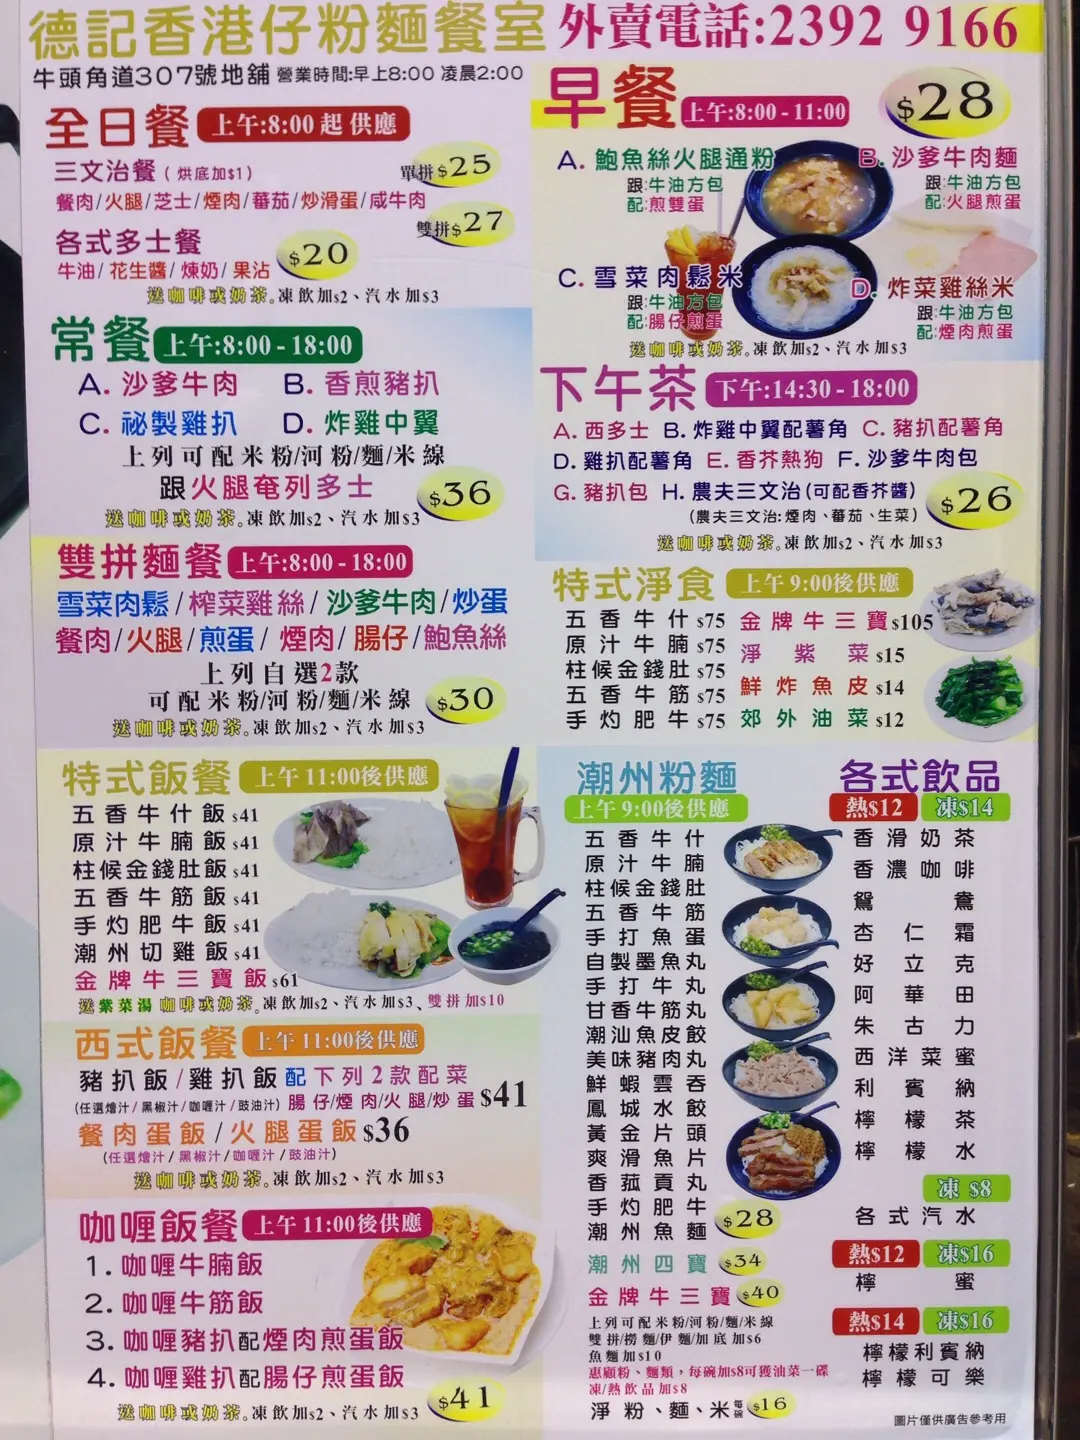 德記香港仔粉麵餐室 外賣電話:2392 9166
牛頭角道307號地舖 營業時間:早上8:00 凌晨2:00
全日餐 上午:8:00 起 供應
三文治餐（烘底加$1） 單拼$25
餐肉/火腿/芝士/煙肉/蕃茄/炒滑蛋/咸牛肉
雙拼$27
各式多士餐 $20
牛油/花生醬/煉奶/果沾
送咖啡或奶茶。凍飲加$2、汽水加$3
常餐 上午:8:00 - 18:00
A. 沙爹牛肉 B. 香煎豬扒
C. 祕製雞扒 D. 炸雞中翼
上列可配米粉/河粉/麵/米線
跟火腿奄列多士 $36
送咖啡或奶茶。凍飲加$2、汽水加$3
雙拼麵餐 上午:8:00 - 18:00
雪菜肉鬆/榨菜雞絲/沙爹牛肉/炒蛋
餐肉/火腿/煎蛋/煙肉/腸仔/鮑魚絲
上列自選2款
可配米粉/河粉/麵/米線 $30
送咖啡或奶茶。凍飲加$2、汽水加$3
特式飯餐 上午11:00後供應
五香牛什飯 $41
原汁牛腩飯 $41
柱候金錢肚飯 $41
五香牛筋飯 $41
手灼肥牛飯 $41
潮州切雞飯 $41
金牌牛三寶飯 $61
送紫菜湯 咖啡或奶茶。凍飲加$2、汽水加$3、雙拼加$10
西式飯餐 上午11:00後供應
豬扒飯/雞扒飯 配下列2款配菜
(任選燴汁/黑椒汁/咖喱汁/豉油汁) 腸仔/煙肉/火腿/炒蛋 $41
餐肉蛋飯/火腿蛋飯 $36
(任選燴汁/黑椒汁/咖喱汁/豉油汁)
送咖啡或奶茶。凍飲加$2、汽水加$3
咖喱飯餐 上午11:00後供應
1. 咖喱牛腩飯
2. 咖喱牛筋飯
3. 咖喱豬扒配煙肉煎蛋飯
4. 咖喱雞扒配腸仔煎蛋飯
$41
送咖啡或奶茶。凍飲加$2、汽水加$3
早餐 上午:8:00 - 11:00 $28
A. 鮑魚絲火腿通粉
跟:牛油方包
配:煎雙蛋
B. 沙爹牛肉麵
跟:牛油方包
配:火腿煎蛋
C. 雪菜肉鬆米
跟:牛油方包
配:腸仔煎蛋
D. 炸菜雞絲米
跟:牛油方包
配:煙肉煎蛋
送咖啡或奶茶。凍飲加$2、汽水加$3
下午茶 下午:14:30 - 18:00
A. 西多士 B. 炸雞中翼配薯角 C. 豬扒配薯角
D. 雞扒配薯角 E. 香芥熱狗 F. 沙爹牛肉包
G. 豬扒包 H. 農夫三文治(可配香芥醬)
(農夫三文治: 煙肉、蕃茄、生菜) $26
送咖啡或奶茶。凍飲加$2、汽水加$3
特式淨食 上午 9:00後供應
五香牛什 $75 金牌牛三寶 $105
原汁牛腩 $75 淨紫菜 $15
柱候金錢肚 $75 鮮炸魚皮 $14
五香牛筋 $75 郊外油菜 $12
手灼肥牛 $75
潮州粉麵
上午 9:00後供應
五香牛什
原汁牛腩
柱候金錢肚
五香牛筋
手打魚蛋
自製墨魚丸
手打牛丸
甘香牛筋丸
潮汕魚皮餃
美味豬肉丸
鮮蝦雲吞
鳳城水餃
黃金片頭
爽滑魚片
香菰貢丸
手灼肥牛
潮州魚麵 $28
潮州四寶 $34
金牌牛三寶 $40
上列可配米粉/河粉/麵/米線
雙拼/撈麵/伊麵/加底加$6
魚麵加$10
惠顧粉、麵類，每碗加$8可獲油菜一碟
凍/熱飲品加$8
淨粉、麵、米每碗 $16
各式飲品
熱$12 凍$14
香滑奶茶
香濃咖啡
鴛鴦
杏仁霜
好立克
阿華田
朱古力
西洋菜蜜
利賓納
檸檬茶
檸檬水
凍 $8
各式汽水
熱$12 凍$16
檸蜜
熱$14 凍$16
檸檬利賓納
檸檬可樂
圖片僅供廣告參考用